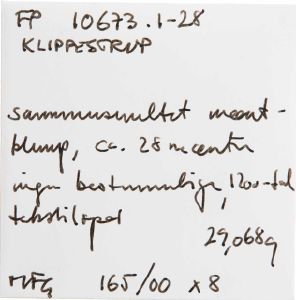 FP 10673.1-28
KLIPPESTRUP
sammensmeltet mønt-
klump, ca. 28 mønter
ingen bestemmelige, 1200-tal
tekstilspor
29,068g
MFG 165/00 x 8